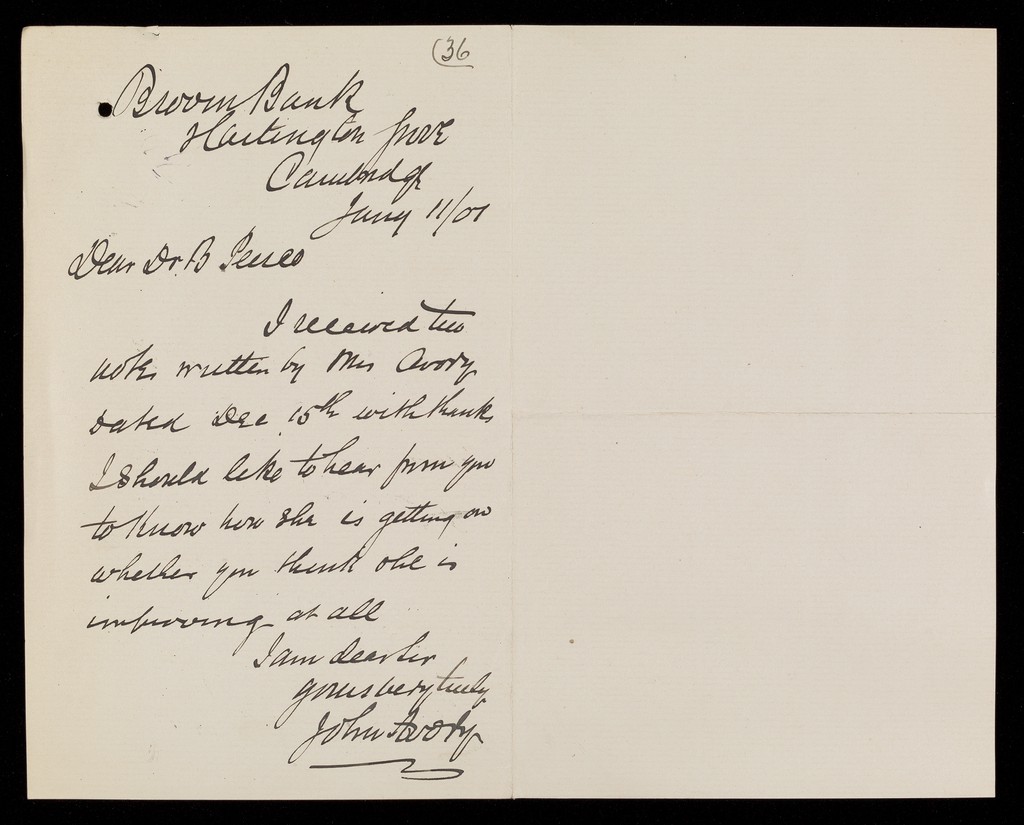 (36
Broom Bank
Hartington Grove
Cambridge
Jany 11/01
Dear Dr. B Pearce
I received two
notes written by Mrs Avory
dated Dec 15th with thanks
I should like to hear from you
to know how she is getting on
whether you think she is
improving at all
I am dear Sir
yours very truly
John Avory